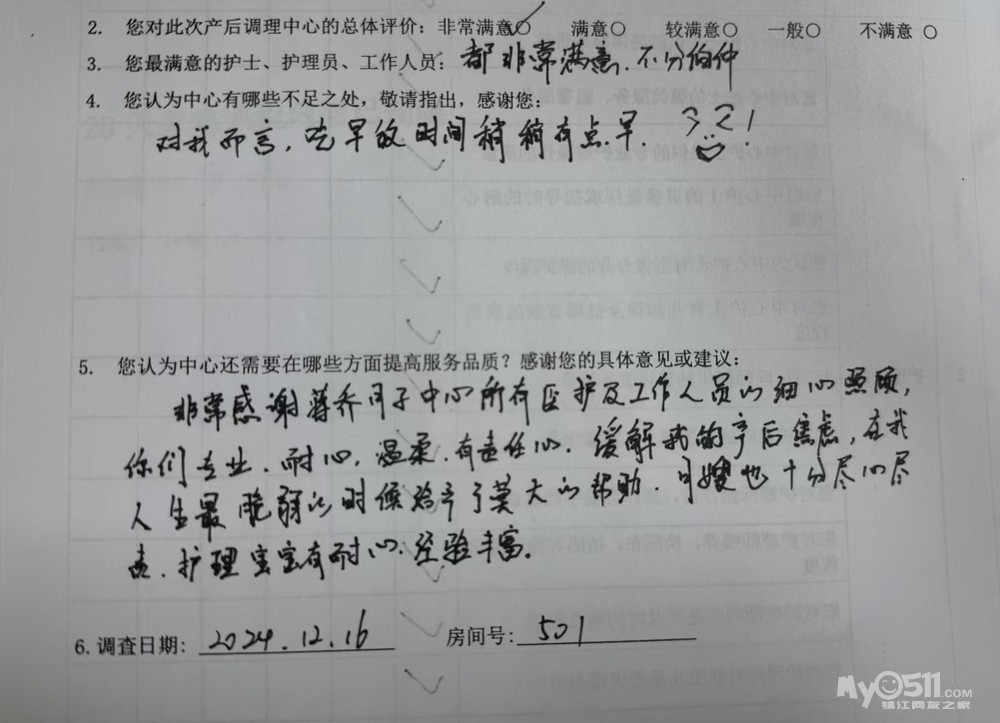 2. 您对此次产后调理中心的总体评价：非常满意○ 满意○ 较满意○ 一般○ 不满意 ○
3. 您最满意的护士、护理员、工作人员：都非常满意.不分伯仲
4. 您认为中心有哪些不足之处，敬请指出，感谢您：
对我而言，吃早饭时间稍稍有点早.
5. 您认为中心还需要在哪些方面提高服务品质？感谢您的具体意见或建议：
非常感谢蒋乔月子中心所有医护及工作人员的细心照顾，
你们专业.耐心.温柔.有责任心.缓解我的产后焦虑，在我
人生最脆弱的时候给予了莫大的帮助.月嫂也十分尽心尽
责.护理宝宝有耐心.经验丰富。
6.调查日期：2024.12.16 房间号：501
My0511.com
镇江网友之家